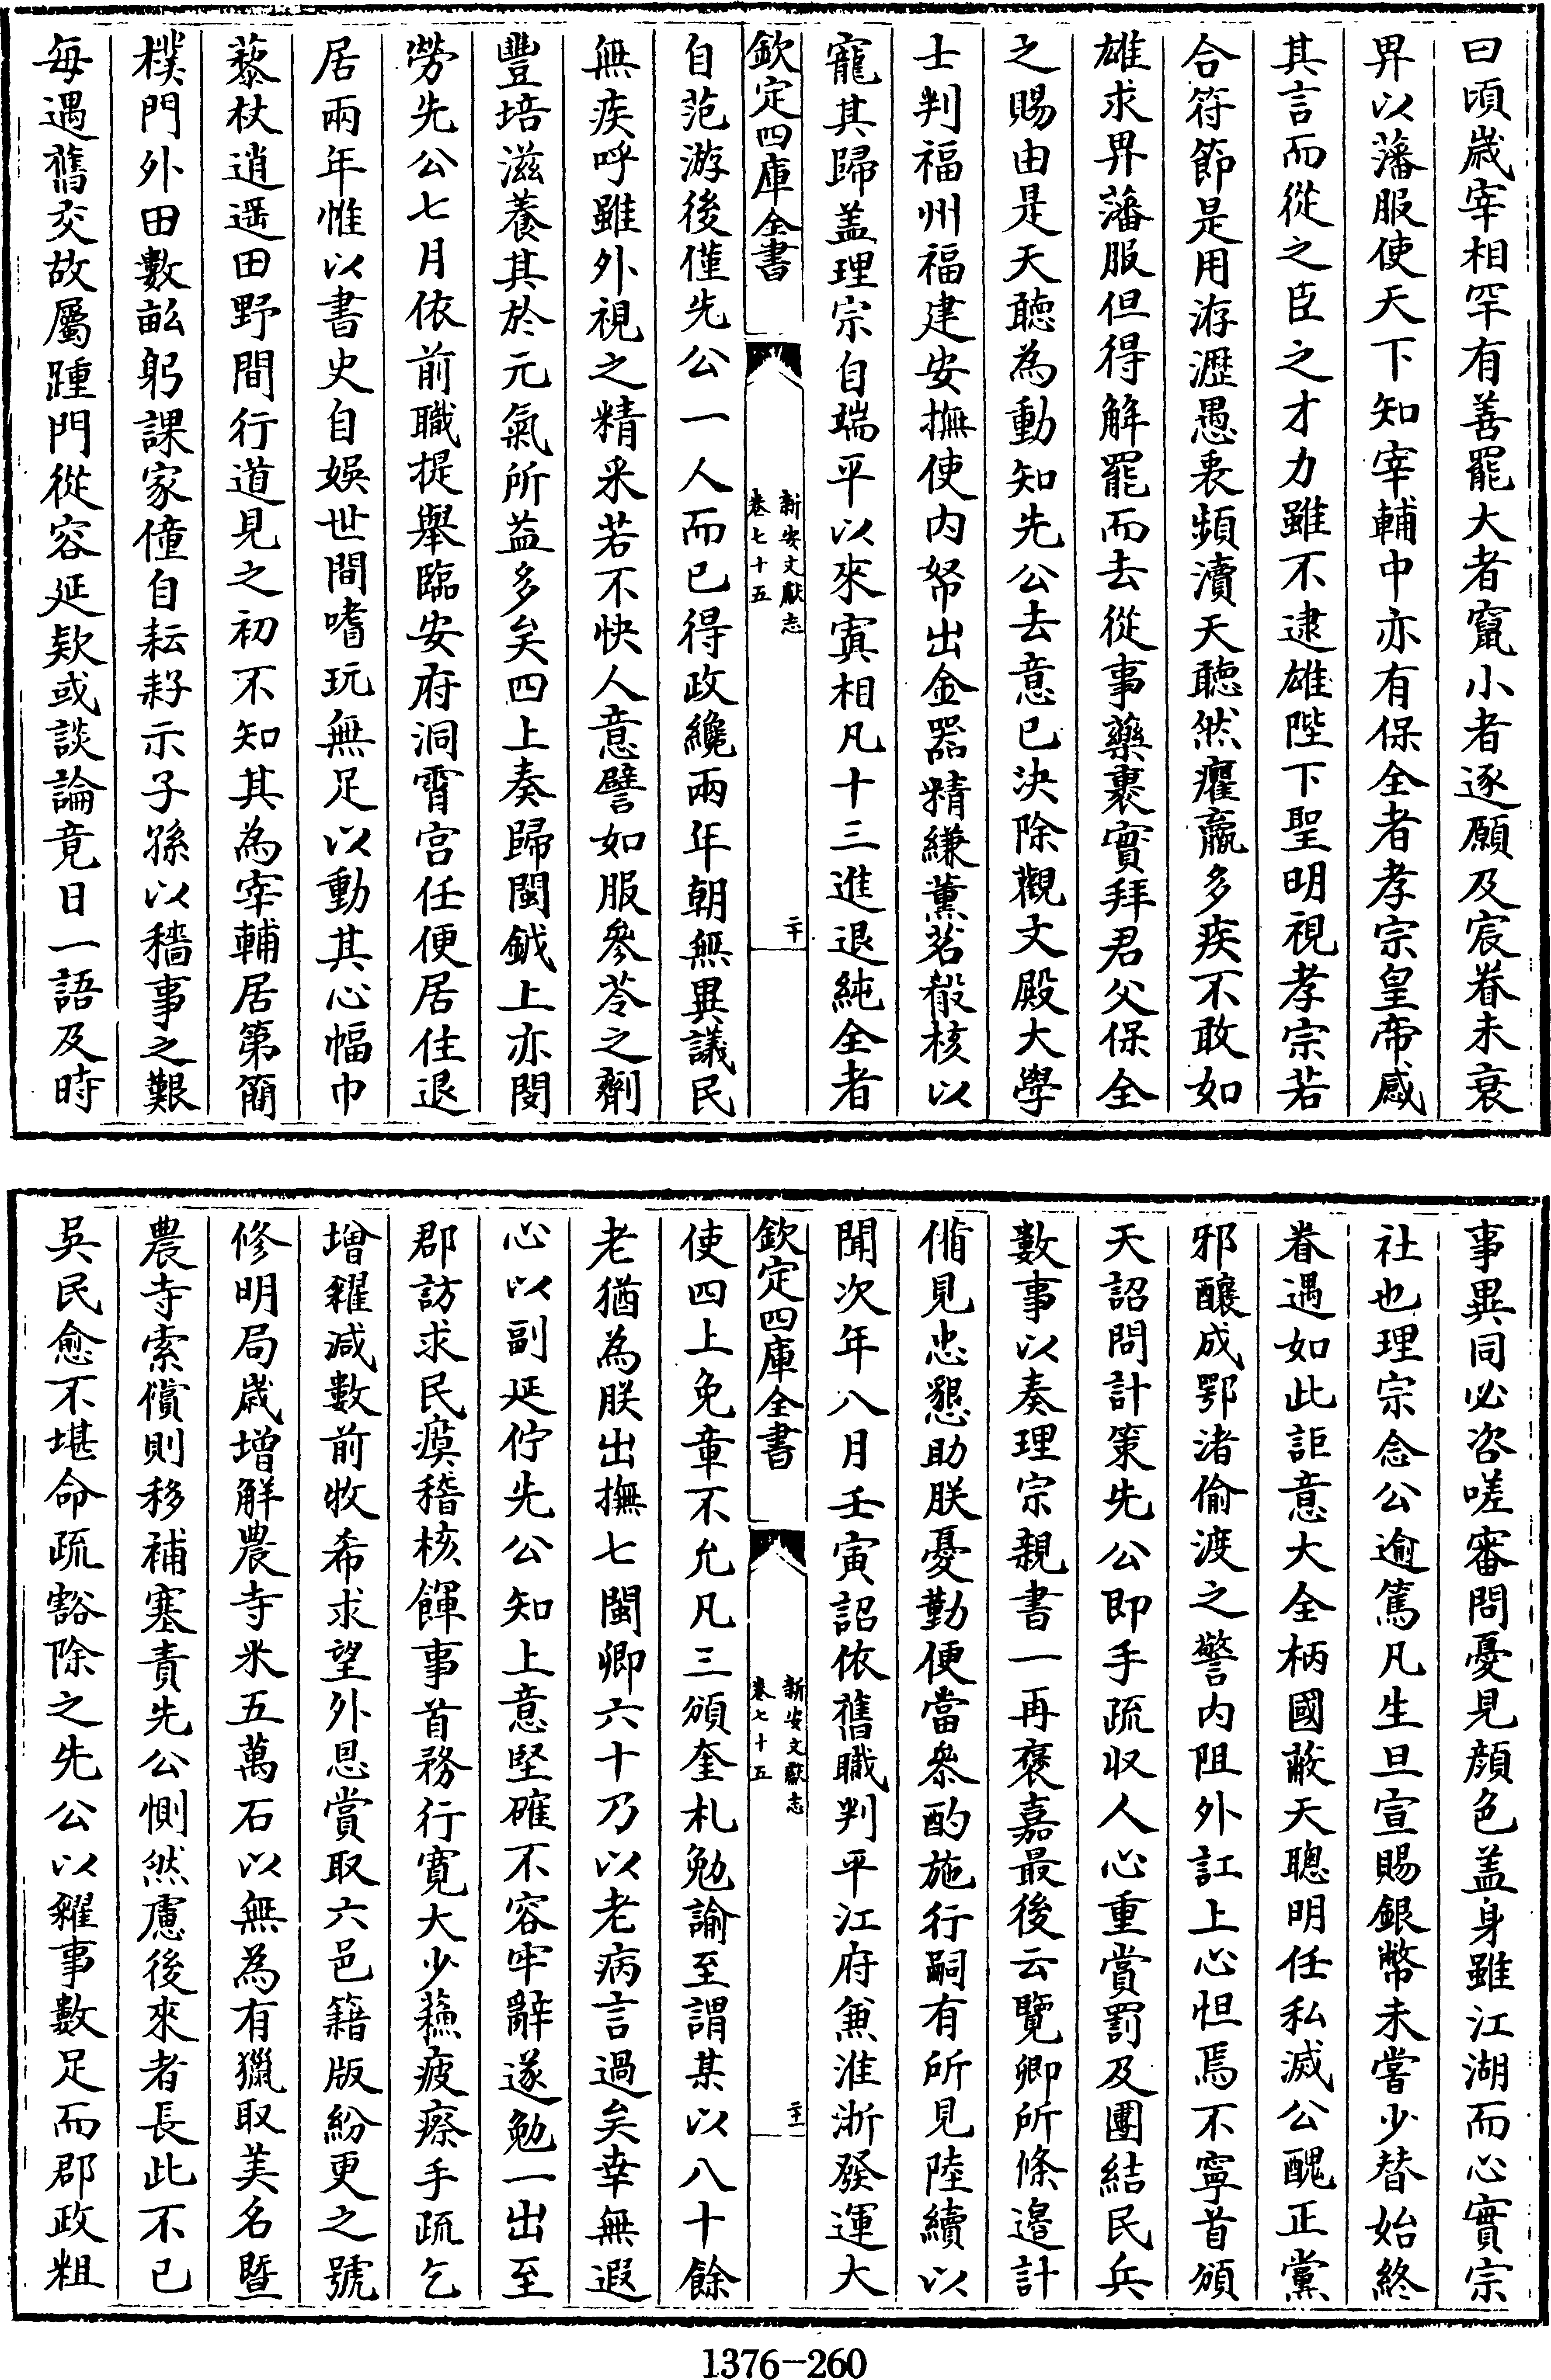 曰頃歳宰相罕有善罷大者竄小者逐願及宸眷未衰
畀以藩服使天下知宰輔中亦有保全者孝宗皇帝感
其言而從之臣之才力雖不逮雄陛下聖明視孝宗若
合符節是用洊瀝愚衷頻瀆天聽然癯羸多疾不敢如
雄求畀藩服但得解罷而去從事藥裹實拜君父保全
之賜由是天聽為動知先公去意已決除觀文殿大學
士判福州福建安撫使内帑出金器精縑薰茗殽核以
寵其歸盖理宗自端平以來寘相凡十三進退純全者
欽定四庫全書
新安文獻志
卷七十五
二十
自范游後僅先公一人而已得政纔兩年朝無異議民
無疾呼雖外視之精采若不快人意譬如服參苓之劑
豐培滋養其於元氣所益多矣四上奏歸閩鉞上亦閔
勞先公七月依前職提舉臨安府洞霄宫任便居住退
居兩年惟以書史自娛世間嗜玩無足以動其心幅巾
藜杖逍遥田野間行道見之初不知其為宰輔居第簡
樸門外田數畝躬課家僮自耘耔示子孫以穡事之艱
每遇舊交故屬踵門從容延欵或談論竟日一語及時
事異同必咨嗟審問憂見顔色盖身雖江湖而心實宗
社也理宗念公逾篤凡生旦宣賜銀幣未嘗少替始終
眷遇如此詎意大全柄國蔽天聰明任私滅公醜正黨
邪釀成鄂渚偷渡之警内阻外訌上心怛焉不寧首頒
天詔問計策先公即手疏収人心重賞罰及團結民兵
數事以奏理宗親書一再褒嘉最後云覽卿所條邉計
脩見忠懇助朕憂勤便當參酌施行嗣有所見陸續以
聞次年八月壬寅詔依舊職判平江府兼淮浙發運大
欽定四庫全書
新安文獻志
卷七十五
二十一
使四上免章不允凡三頒奎札勉諭至謂某以八十餘
老猶為朕出撫七閩卿六十乃以老病言過矣幸無遐
心以副延佇先公知上意堅確不容牢辭遂勉一出至
郡訪求民瘼稽核餫事首務行寛大少蘓疲瘵手疏乞
增糴減數前牧希求望外恩賞取六邑籍版紛更之號
修明局歳增解農寺米五萬石以無為有獵取美名暨
農寺索償則移補塞責先公惻然慮後來者長此不已
吳民愈不堪命疏豁除之先公以糴事數足而郡政粗
1376-260